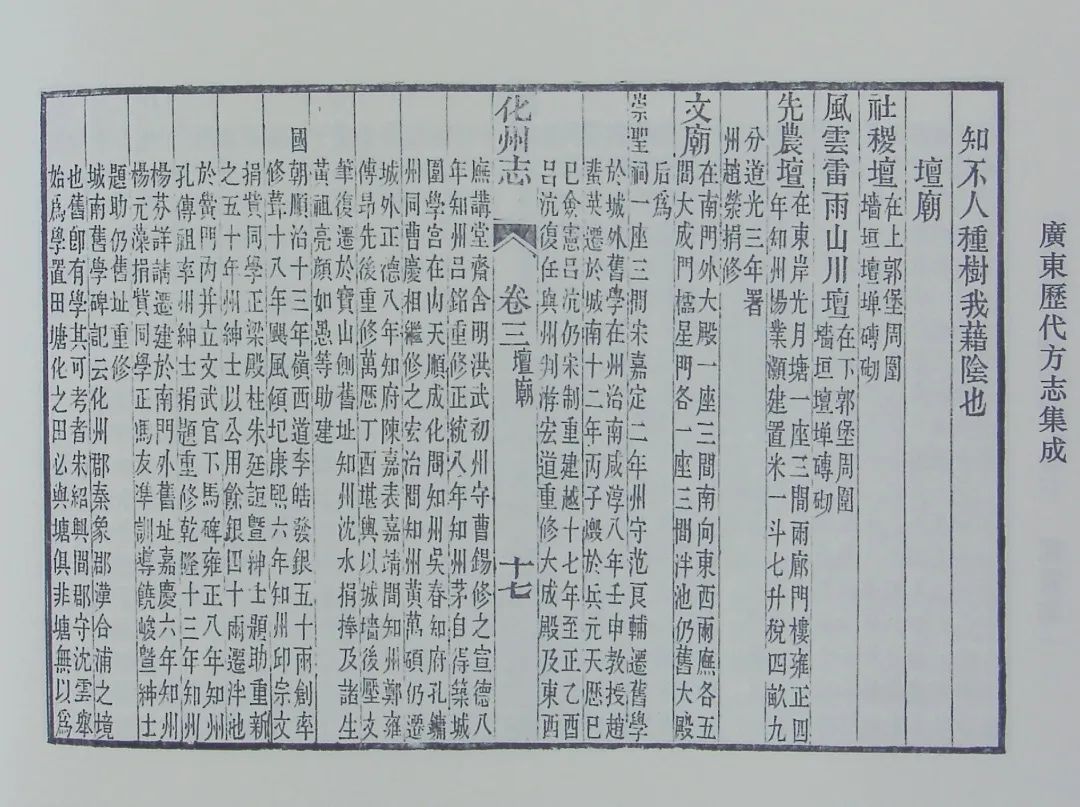 廣東歷代方志集成
知不人種樹我藉陰也
壇廟
社稷壇在上郭堡周圍
墻垣壇墠磚砌
風雲雷雨山川壇在下郭堡周圍
墻垣壇墠磚砌
先農壇在東岸光月塘一座三間兩廊門樓雍正四
年知州楊業灝建置米一斗七升稅四畝九
分道光三年署
州趙榮捐修
文廟在南門外大殿一座三間南向東西兩廡各五
間大成門櫺星門各一座三間泮池仍舊大殿
后爲
崇聖祠一座三間宋嘉定二年州守范良輔遷舊學
於城外舊學在州治南咸淳八年壬申教授趙
蜚英遷於城南十二年丙子燬於兵元天歷己
巳僉憲呂沆仍宋制重建越十七年至正乙酉
呂沆復任與州判蔣宏道重修大成殿及東西
化州志 卷三 壇廟 十七
廡講堂齋舍明洪武初州守曹錫修之宣德八
年知州呂銘重修正統八年知州茅自得築城
圍學宮在山天順成化間知州吳春知府孔鏞
州同曹慶相繼修之宏治間知州黃萬碩仍遷
城外正德八年知府陳嘉表嘉靖間知州鄭雍
傅昻先後重修萬歷丁酉堪輿以城墻後壓文
筆復遷於寶山側舊址知州沈水捐捧及諸生
黃祖亮顔如愚等助建
國朝順治十三年嶺西道李皓發銀五十兩創率
修葺十八年颶風傾圮康熙六年知州邱宗文
捐貲同學正梁殿桂朱廷誼曁紳士題助重新
之五十年州紳士以公用餘銀四十兩遷泮池
於黌門內并立文武官下馬碑雍正八年知州
孔傳祖率州紳士捐題重修乾隆十三年知州
楊芬詳請遷建於南門外舊址嘉慶六年知州
楊元藻捐貲同學正馮友準訓導饒峻曁紳士
題助仍舊址重修
城南舊學碑記云化州郡秦象郡漢合浦之境
也舊卽有學其可考者宋紹興間郡守沈雲舉
始爲學置田塘化之田必與塘俱非塘無以爲